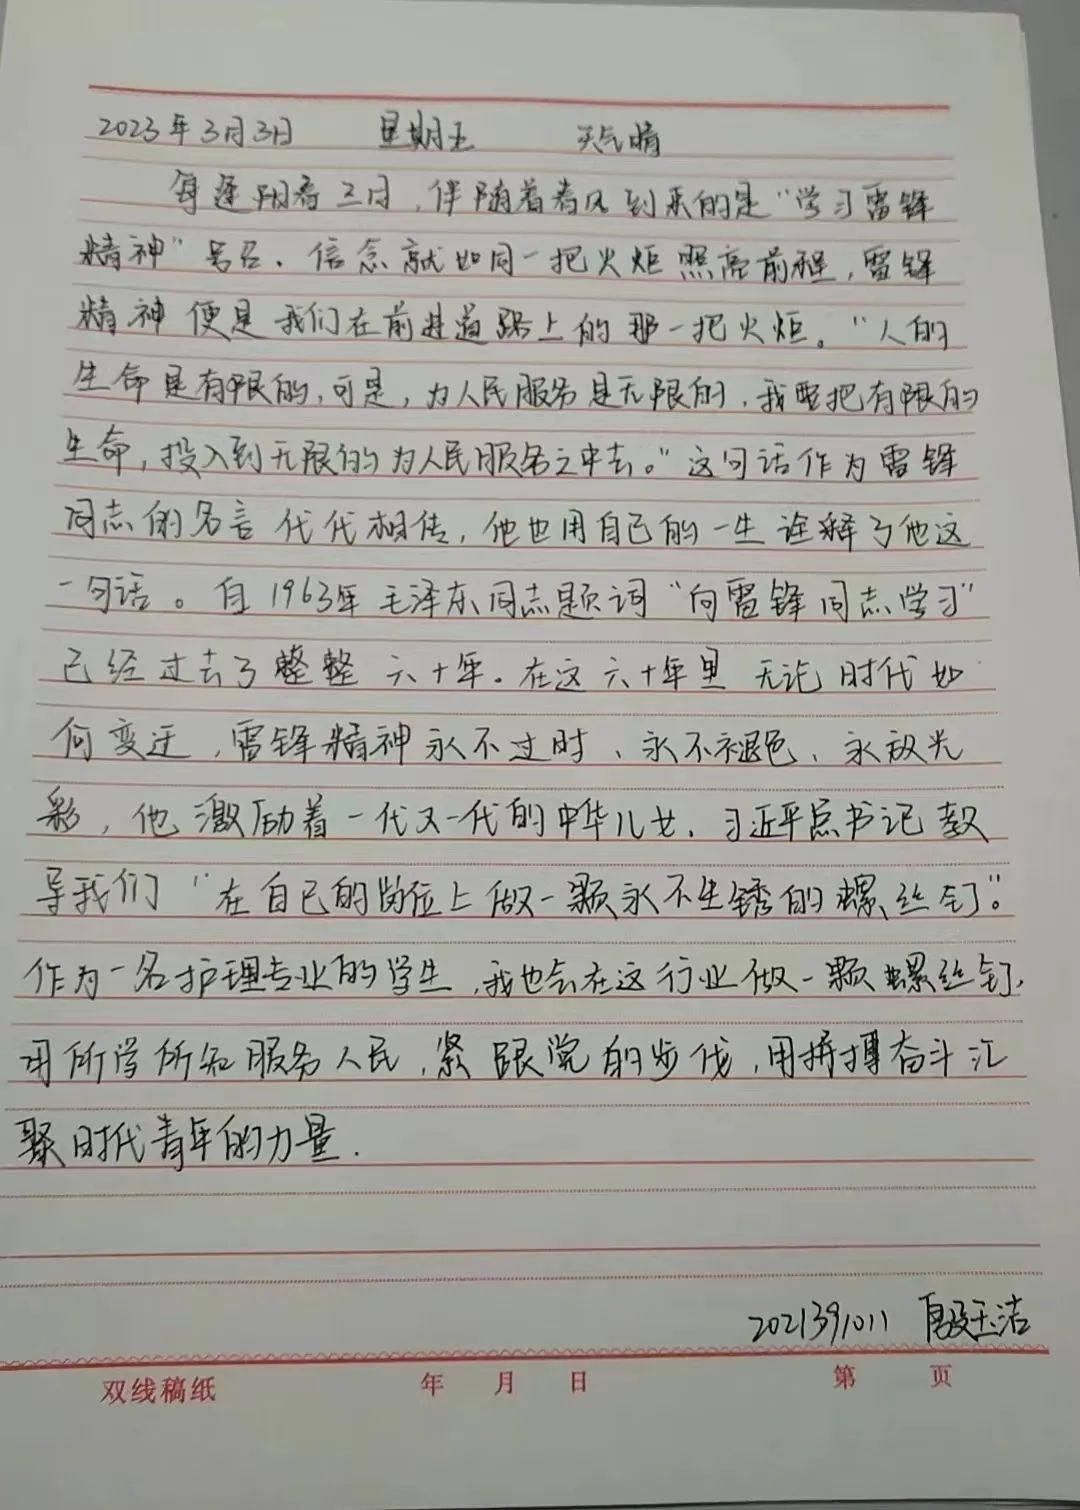 2023年3月3日 星期五 天气晴
每逢阳春三月，伴随着春风到来的是“学习雷锋
精神”号召。信念就如同一把火炬照亮前程，雷锋
精神便是我们在前进道路上的那一把火炬。“人的
生命是有限的，可是，为人民服务是无限的，我要把有限的
生命，投入到无限的为人民服务之中去。”这句话作为雷锋
同志的名言代代相传，他也用自己的一生诠释了他这
一句话。自1963年毛泽东同志题词“向雷锋同志学习”
已经过去了整整六十年。在这六十年里无论时代如
何变迁，雷锋精神永不过时、永不褪色、永放光
彩，他激励着一代又一代的中华儿女。习近平总书记教
导我们“在自己的岗位上做一颗永不生锈的螺丝钉”。
作为一名护理专业的学生，我也会在这行业做一颗螺丝钉，
用所学所知服务人民，紧跟党的步伐，用拼搏奋斗汇
聚时代青年的力量.
2021391011 殷玉洁
双线稿纸 年 月 日 第 页